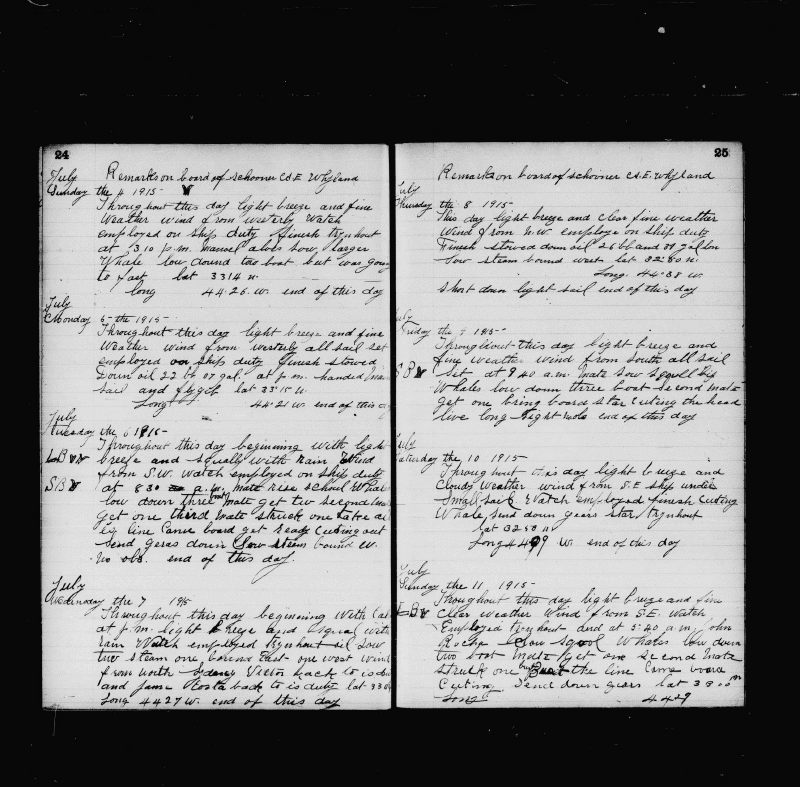 24
Remarks on board of schooner C.S.E. Whyland
July
Sunday the 4 1915
Throughout this day light breeze and fine
Weather wind from westerly Watch
employed on ship duty finish trynhout
at 3 10 p.m. sow larger
Whale low dound two boat but was going
to fast lat 33 14 n
long 44.26.W. end of this day
July
Monday 5 the 1915
Throughout this day light breeze and fine
Weather wind from westerly all sail set
employed on ship duty finish stowed
Down oil 22 bb 07 gal at p.m. handed
sail and lat 33 15 n
Long 44.21 W. end of this
July
Tuesday the 6 1915
Throughout this day beginning with light
LB breeze and squally with rain Wind
from S.W. Watch employed on ship duty
SB at 8 30 a.m. mate rise school Whale
low down three boat mate get two second
get one third mate struck one take
line Came board get ready Cuting out
send geras down Sow steem bound W.
No obs. end of this day
July
Wednesday the 7 1915
Throughout this day beginning With
at p.m. light breeze and with
rain Watch employed trynhout oil Sow
two steam one bound East one west wind
from north Victor back to is
and Costa back to is duty lat 33
Long 44 27 W. end of this day
25
Remarks on board of schooner C.S.E. Whyland
July
Thursday the 8 1915
This day light breeze and clear fine weather
Wind from N.W. employe on ship duty
Finish stowed down oil 26 bb and 08 gallon
Sow steam bound west lat 32:50 n.
Long. 44-38 W.
Short down light sail end of this day
July
Friday the 9 1915
Throughout this day light breeze and
fine weather wind from South all sail
SB set at 8 40 a.m. mate sow
Whales low down three boat second mate
get one bring board star Cuting the head
end of this day
July
Saturday the 10 1915
Throughout this day light breeze and
Cloudy Weather wind from S.E ship under
Small sail Watch employed finish Cuting
Whale, send down gears star trynhout
lat 32 50 n
Long 44 9 W. end of this day
July
Sunday the 11 1915
Throughout this day light breeze and fine
LB Clear Weather Wind from S.E. Watch
Employed trynhout and at 5:40 a.m. John
Sow Whales low down
two boat mate get one second mate
struck one but the line Came board
Cuting Send down gears lat 33 00 n
Long 44 29